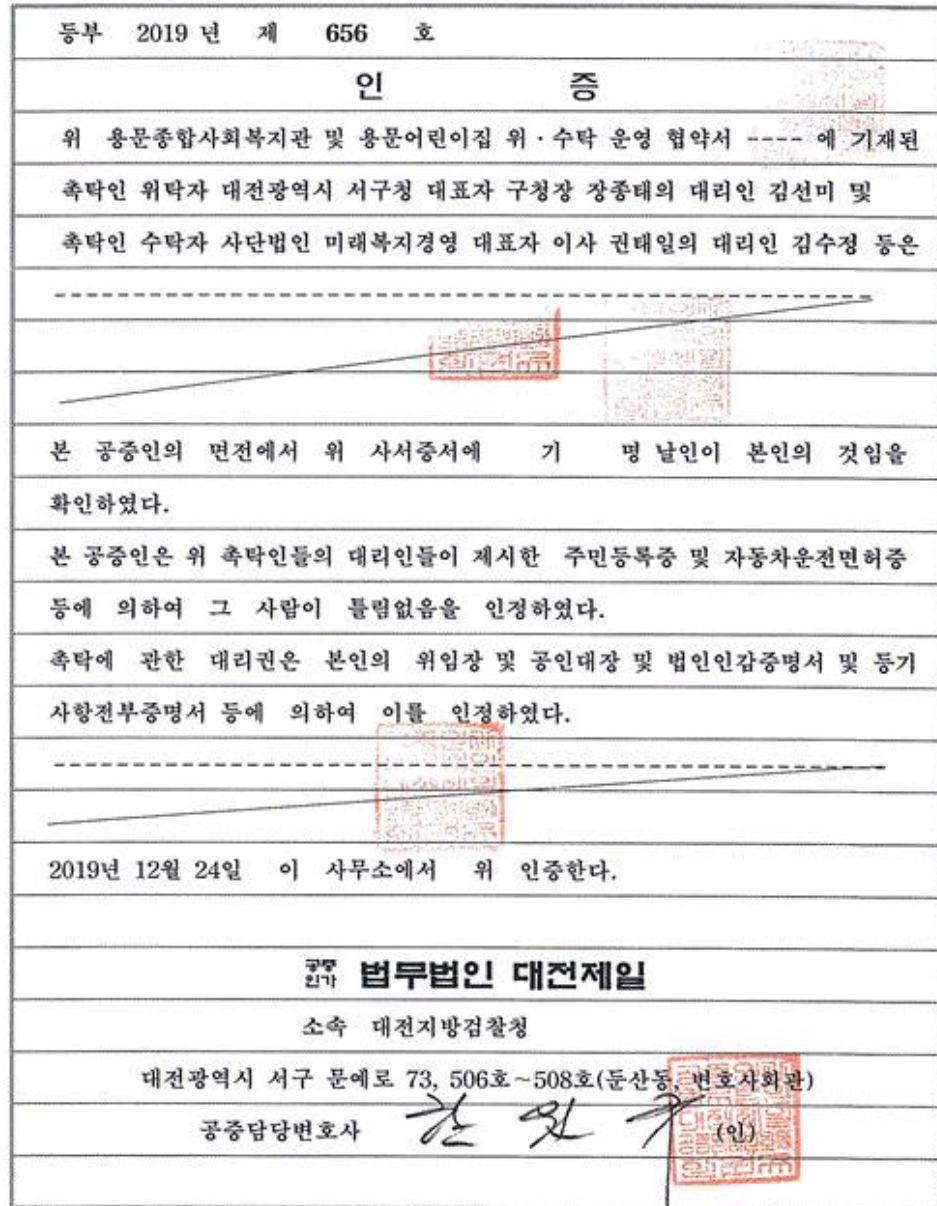 등부 2019 년 제 656 호
인 증
위 용문종합사회복지관 및 용문어린이집 위·수탁 운영 협약서 ---- 에 기재된
촉탁인 위탁자 대전광역시 서구청 대표자 구청장 장종태의 대리인 김선미 및
촉탁인 수탁자 사단법인 미래복지경영 대표자 이사 권태일의 대리인 김수정 등은
본 공증인의 면전에서 위 사서증서에 기 명 날인이 본인의 것임을
확인하였다.
본 공증인은 위 촉탁인들의 대리인들이 제시한 주민등록증 및 자동차운전면허증
등에 의하여 그 사람이 틀림없음을 인정하였다.
촉탁에 관한 대리권은 본인의 위임장 및 공인대장 및 법인인감증명서 및 등기
사항전부증명서 등에 의하여 이를 인정하였다.
2019년 12월 24일 이 사무소에서 위 인증한다.
공증인가 법무법인 대전제일
소속 대전지방검찰청
대전광역시 서구 문예로 73, 506호~508호(둔산동, 변호사회관)
공증담당변호사 (인)